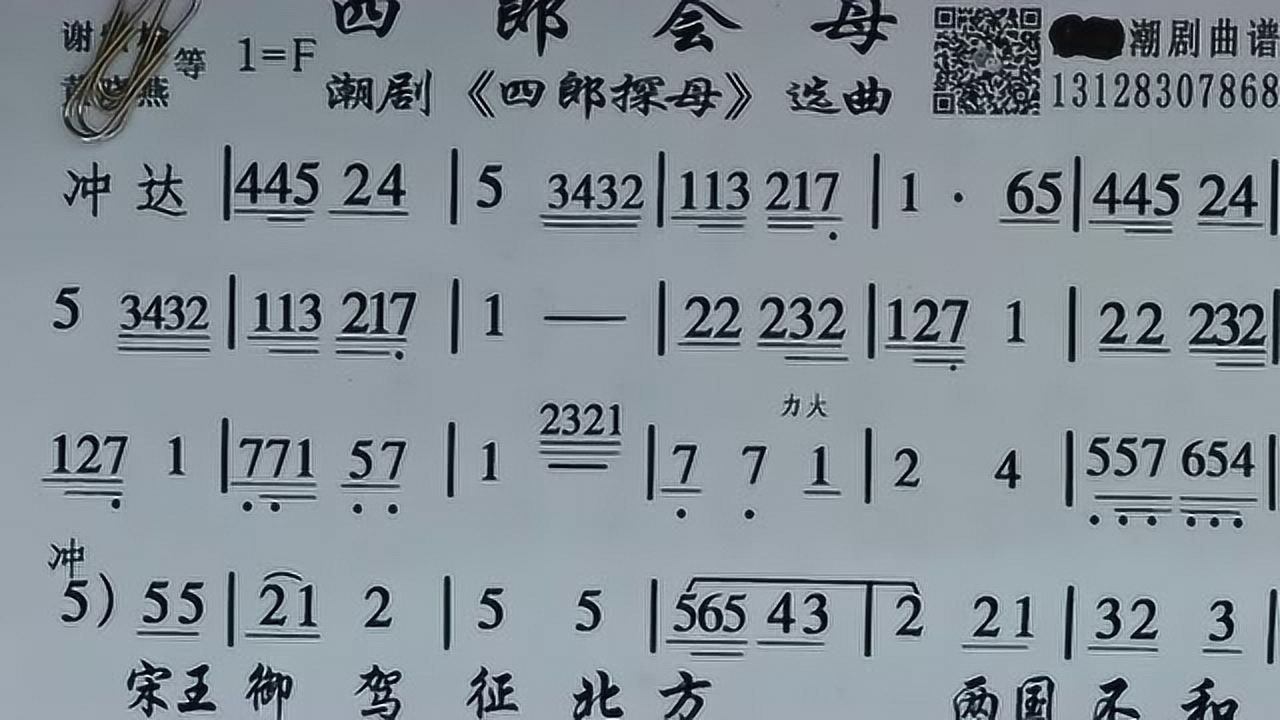 四郎会母
谢 等 1=F
燕
潮剧《四郎探母》选曲
潮剧曲谱
13128307868
冲 达 | 445 24 | 5 3432 | 113 217 | 1 · 65 | 445 24 |
5 3432 | 113 217 | 1 — | 22 232 | 127 1 | 22 232 |
力大
127 1 | 771 57 | 1 2321 | 7 7 1 | 2 4 | 557 654 |
冲
5) 55 | 21 2 | 5 5 | 565 43 | 2 21 | 32 3 |
宋王御驾征北方 两国不和